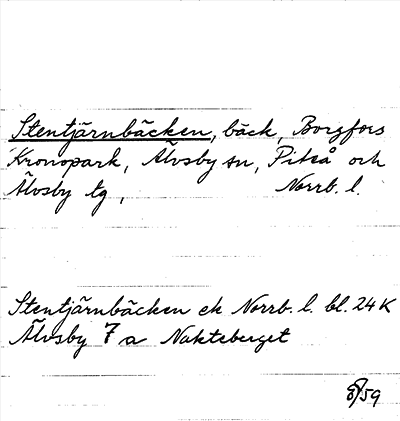 Stentjärnbäcken, bäck, Borgfors
Kronopark, Älvsby sn, Piteå och
Älvsby tg, Norrb. l.
Stentjärnbäcken ek Norrb. l. bl. 24 K
Älvsby 7 a Nakteberget
/59